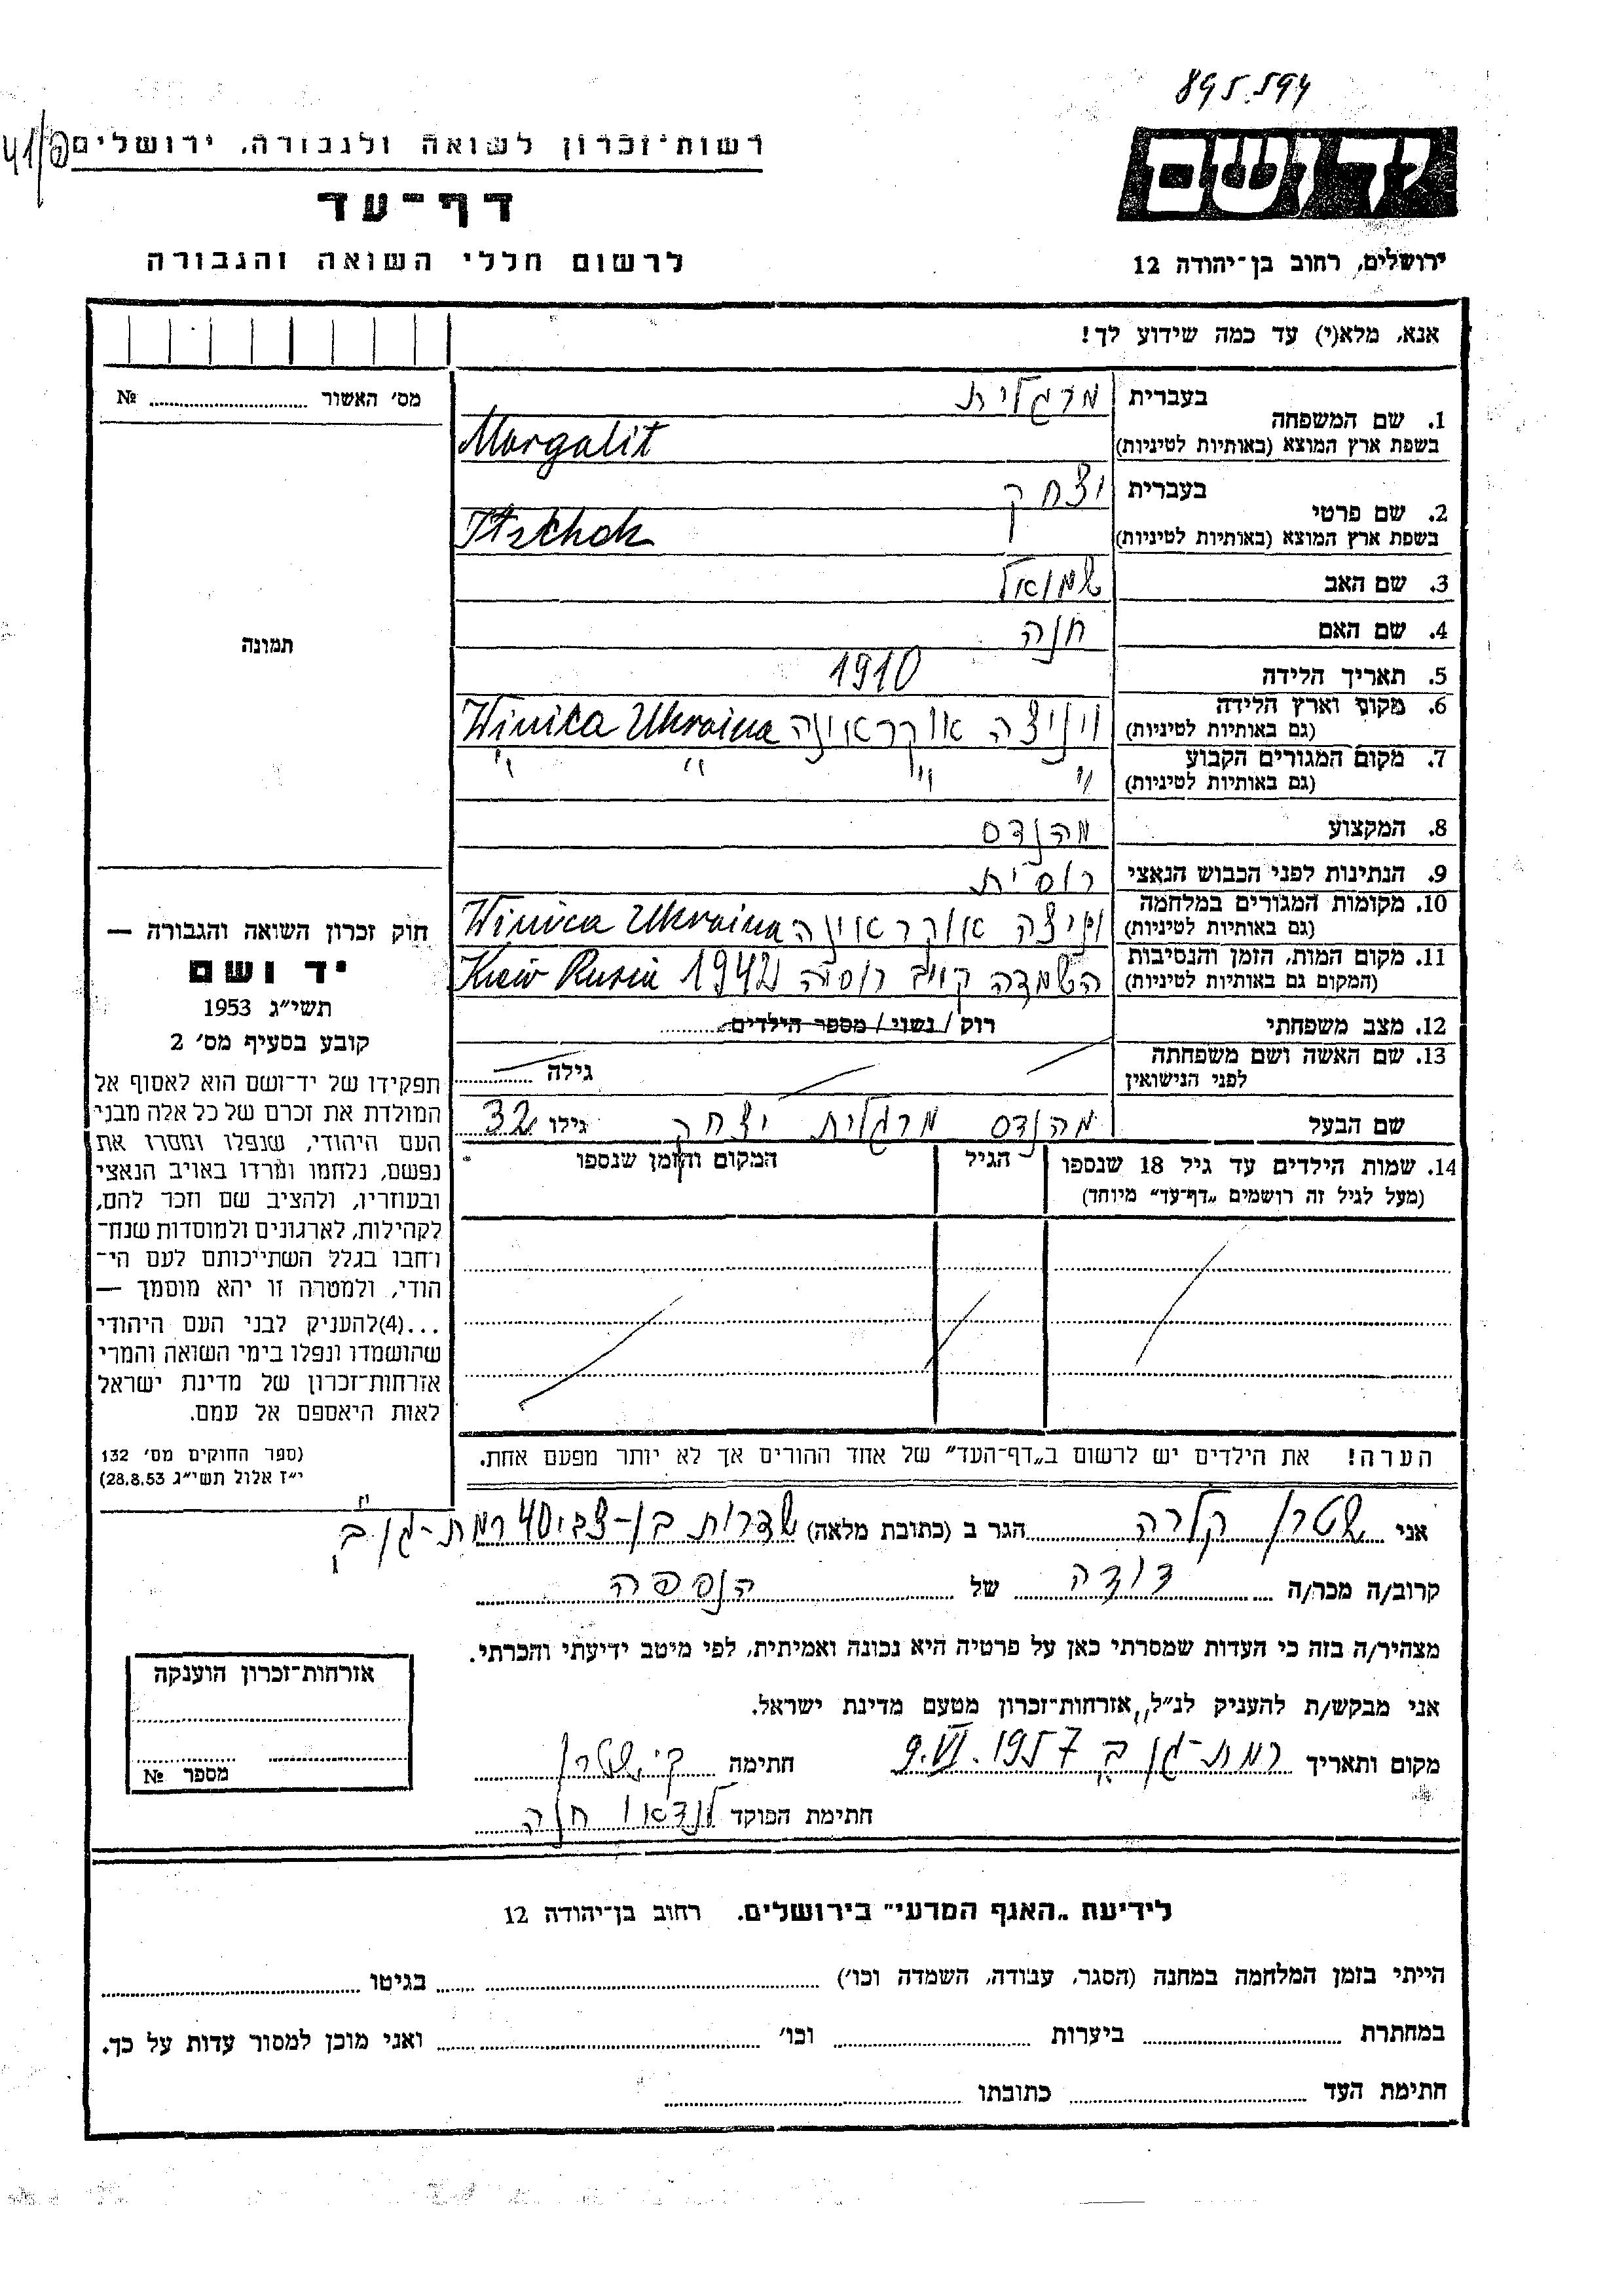 895.594
41/פ
רשות־זכרון לשואה ולגבורה, ירושלים
דף־עד
לרשום חללי השואה והגבורה
יד ושם
ירושלים, רחוב בן־יהודה 12
אנא, מלא(י) עד כמה שידוע לך!
מס׳ האשור № 
תמונה
חוק זכרון השואה והגבורה —
יד ושם
תשי״ג 1953
קובע בסעיף מס׳ 2
תפקידו של יד־ושם הוא לאסוף אל
המולדת את זכרם של כל אלה מבני
העם היהודי, שנפלו ומסרו את
נפשם, נלחמו ומרדו באויב הנאצי
ובעוזריו, ולהציב שם וזכר להם,
לקהילות, לארגונים ולמוסדות שנח־
רחבו בגלל השתייכותם לעם הי־
הודי, ולמטרה זו יהא מוסמך —
...(4)להעניק לבני העם היהודי
שהושמדו ונפלו בימי השואה והמרי
אזרחות־זכרון של מדינת ישראל
לאות היאספם אל עמם.
(ספר החוקים מס׳ 132
י״ז אלול תשי״ג 28.8.53)
1. שם המשפחה בעברית מרגלית
בשפת ארץ המוצא (באותיות לטיניות) Morgalit
2. שם פרטי בעברית יצחק
בשפת ארץ המוצא (באותיות לטיניות) Itzchok
3. שם האב שמואל
4. שם האם חנה
5. תאריך הלידה 1910
6. מקום וארץ הלידה (גם באותיות לטיניות) ויניצה אוקראינה Winica Ukraina
7. מקום המגורים הקבוע (גם באותיות לטיניות) " " " "
8. המקצוע מהנדס
9. הנתינות לפני הכבוש הנאצי רוסית
10. מקומות המגורים במלחמה (גם באותיות לטיניות) ויניצה אוקראינה Winica Ukraina
11. מקום המות, הזמן והנסיבות (המקום גם באותיות לטיניות) השמדה קיוב רוסיה 1942 Kiew Rusia
12. מצב משפחתי רווק / נשוי / מספר הילדים
13. שם האשה ושם משפחתה לפני הנישואין גילה
שם הבעל מהנדס מרגלית יצחק גילו 32
14. שמות הילדים עד גיל 18 שנספו הגיל המקום והזמן שנספו
(מעל לגיל זה רושמים „דף־עד״ מיוחד)
הערה! את הילדים יש לרשום ב„דף־העד״ של אחד ההורים אך לא יותר מפעם אחת.
אני שטרן קלרה הגר ב (כתובת מלאה) שדרות בן-צבי 40 רמת-גן ב
קרוב/ה מכר/ה דודה של הנספה
מצהיר/ה בזה כי העדות שמסרתי כאן על פרטיה היא נכונה ואמיתית, לפי מיטב ידיעתי והכרתי.
אני מבקש/ת להעניק לנ״ל, אזרחות־זכרון מטעם מדינת ישראל.
מקום ותאריך רמת-גן ב 9.VI.1957 חתימה ק. שטרן
חתימת הפוקד לנדאו חנה
אזרחות־זכרון הוענקה
מספר №
לידיעת „האגף המדעי״ בירושלים. רחוב בן־יהודה 12
הייתי בזמן המלחמה במחנה (הסגר, עבודה, השמדה וכו׳) בגיטו
במחתרת ביערות וכו׳ ואני מוכן למסור עדות על כך.
חתימת העד כתובתו